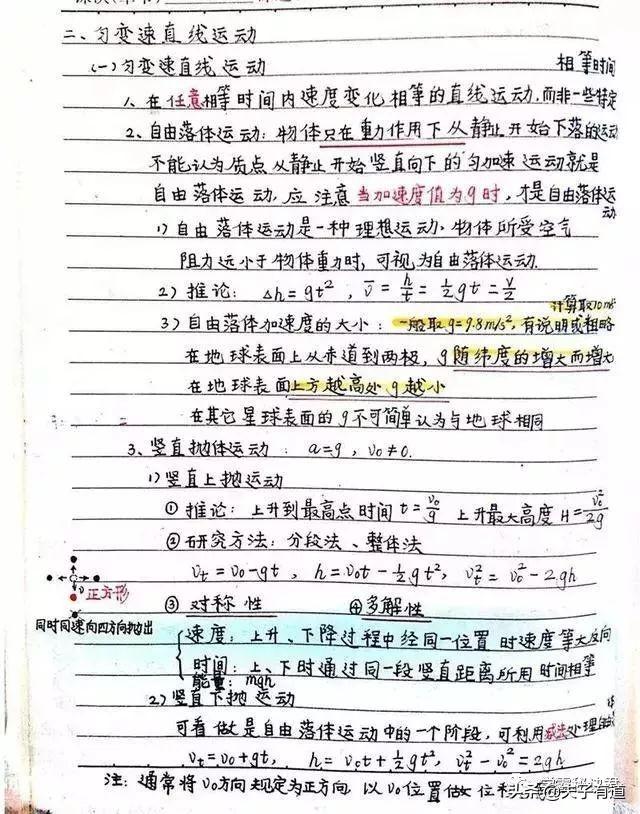 二、匀变速直线运动
(一)匀变速直线运动
相等时间
1、在任意相等时间内速度变化相等的直线运动,而非一些特定
2、自由落体运动：物体只在重力作用下从静止开始下落的运动
不能认为质点从静止开始竖直向下的匀加速运动就是
自由落体运动,应注意当加速度值为g时,才是自由落体运
动
1）自由落体运动是一种理想运动,物体所受空气
阻力远小于物体重力时,可视为自由落体运动.
2）推论：Δh=gt², v̄=h/t=½gt=v/2
计算取10m/s²
3）自由落体加速度的大小：一般取g=9.8m/s²,有说明或粗略
在地球表面上从赤道到两极,g随纬度的增大而增大
在地球表面上方越高处g越小
在其它星球表面的g不可简单认为与地球相同
3、竖直抛体运动：a=g, v₀≠0.
1）竖直上抛运动
①推论：上升到最高点时间t=v₀/g 上升最大高度H=v₀²/2g
②研究方法：分段法、整体法
vt=v₀-gt, h=v₀t-½gt², vt²=v₀²-2gh
正方形
③对称性 ④多解性
同时同速向四方向抛出
速度：上升、下降过程中经同一位置时速度等大反向
时间：上、下时通过同一段竖直距离所用时间相等
能量：mgh
2）竖直下抛运动
可看做是自由落体运动中的一个阶段,可利用减法处理
vt=v₀+gt, h=v₀t+½gt², vt²-v₀²=2gh
注：通常将v₀方向规定为正方向 以v₀位置做位移
头条@天子有道